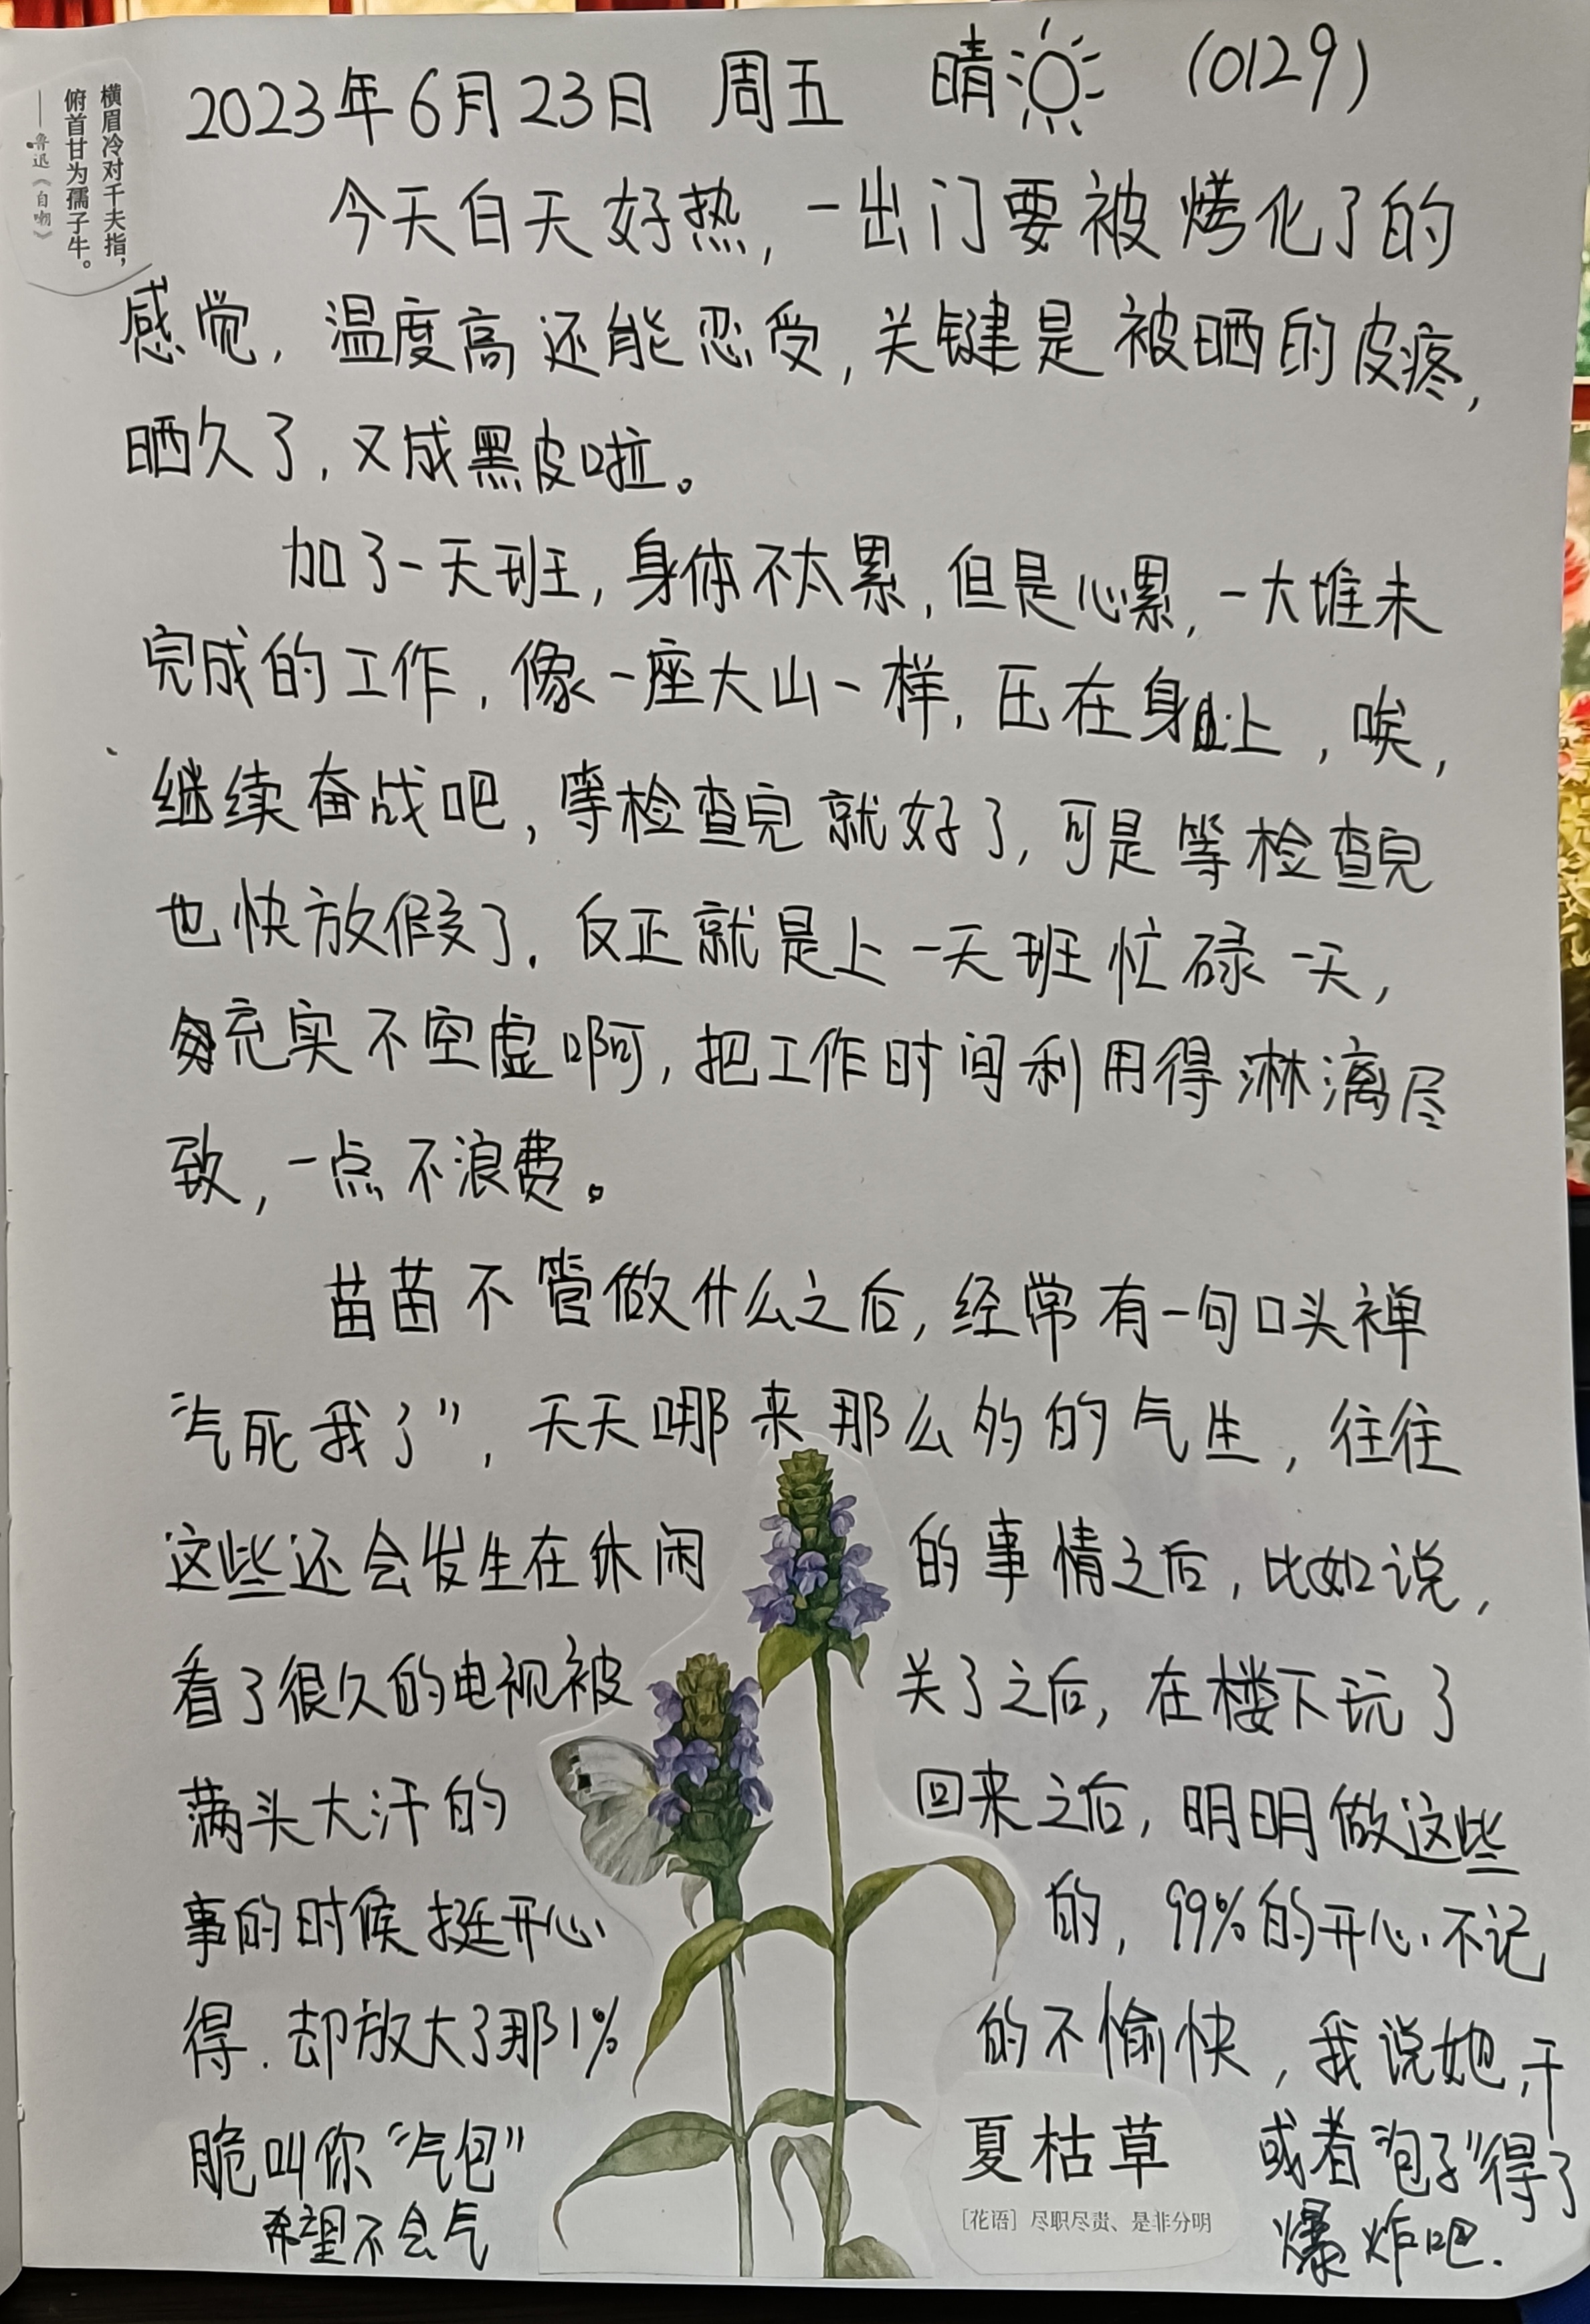 横眉冷对千夫指，
俯首甘为孺子牛。
——鲁迅《自嘲》
2023年6月23日 周五 晴 (0129)
今天白天好热，一出门要被烤化了的
感觉，温度高还能忍受，关键是被晒的皮疼，
晒久了，又成黑皮啦。
加了一天班，身体不太累，但是心累，一大堆未
完成的工作，像一座大山一样，压在身上，唉，
继续奋战吧，等检查完就好了，可是等检查完
也快放假了．反正就是上一天班忙碌一天，
充实不空虚啊，把工作时间利用得淋漓尽
致，一点不浪费。
苗苗不管做什么之后，经常有一句口头禅
“气死我了”，天天哪来那么多的气生，往往
这些还会发生在休闲的事情之后，比如说，
看了很久的电视被关了之后，在楼下玩了
满头大汗的回来之后，明明做这些
事的时候挺开心的，99%的开心不记
得．却放大了那1%的不愉快，我说她，干
脆叫你“气包”或者“包子”得了
希望不会气爆炸吧．
夏枯草
［花语］尽职尽责、是非分明